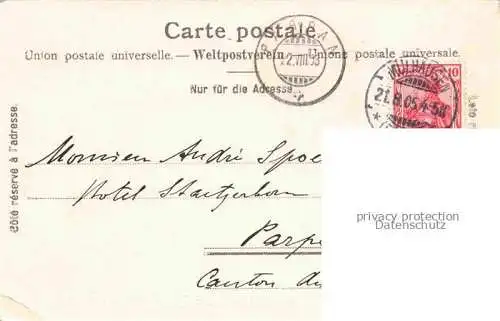 Carte postale.
Union postale universelle. — Weltpostverein. — Unione postale universale.
Nur für die Adresse.
Côté réservé à l'adresse.
MÜLHAUSEN
21.8.05.4-5N
10
Monsieur André
Hotel
Canton du
privacy protection
Datenschutz